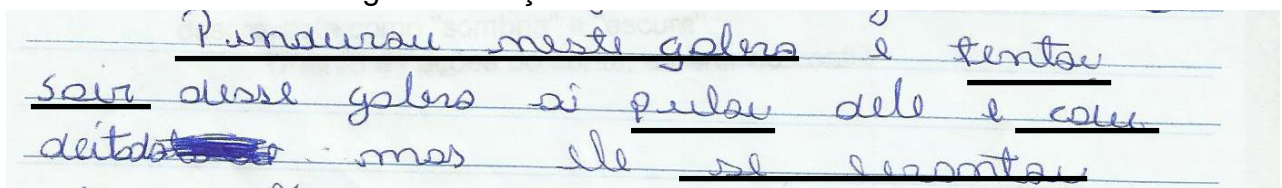 Pindurau neste galero e tentou
sair desse galero ai pulou dele e caiu
deitado mas ele se levantou